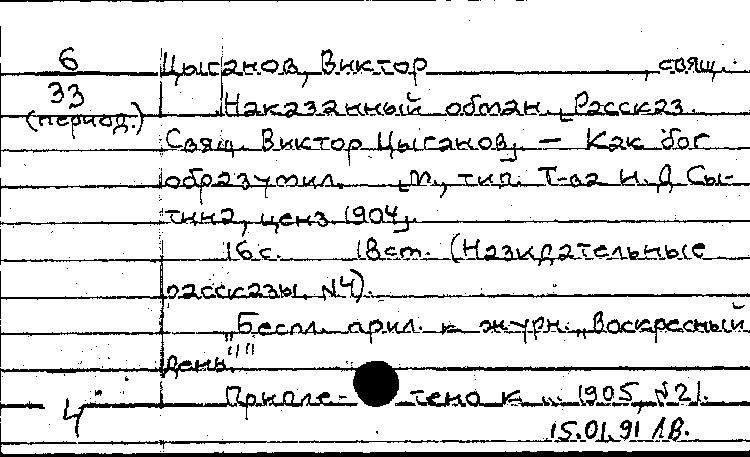 6 Цыганов, Виктор , свящ.
33 Наказанный обман. [Рассказ.
(период.)
Свящ. Виктор Цыганов]. — Как бог
образумил. [М., тип. Т-ва И. Д. Сы-
тина, ценз. 1904].
16 с. 18 см. (Назидательные
рассказы. №4).
"Беспл. прил. к журн. "Воскресный
день""
Припле- тено к ... 1905, №21.
4 15.01.91 ЛВ.